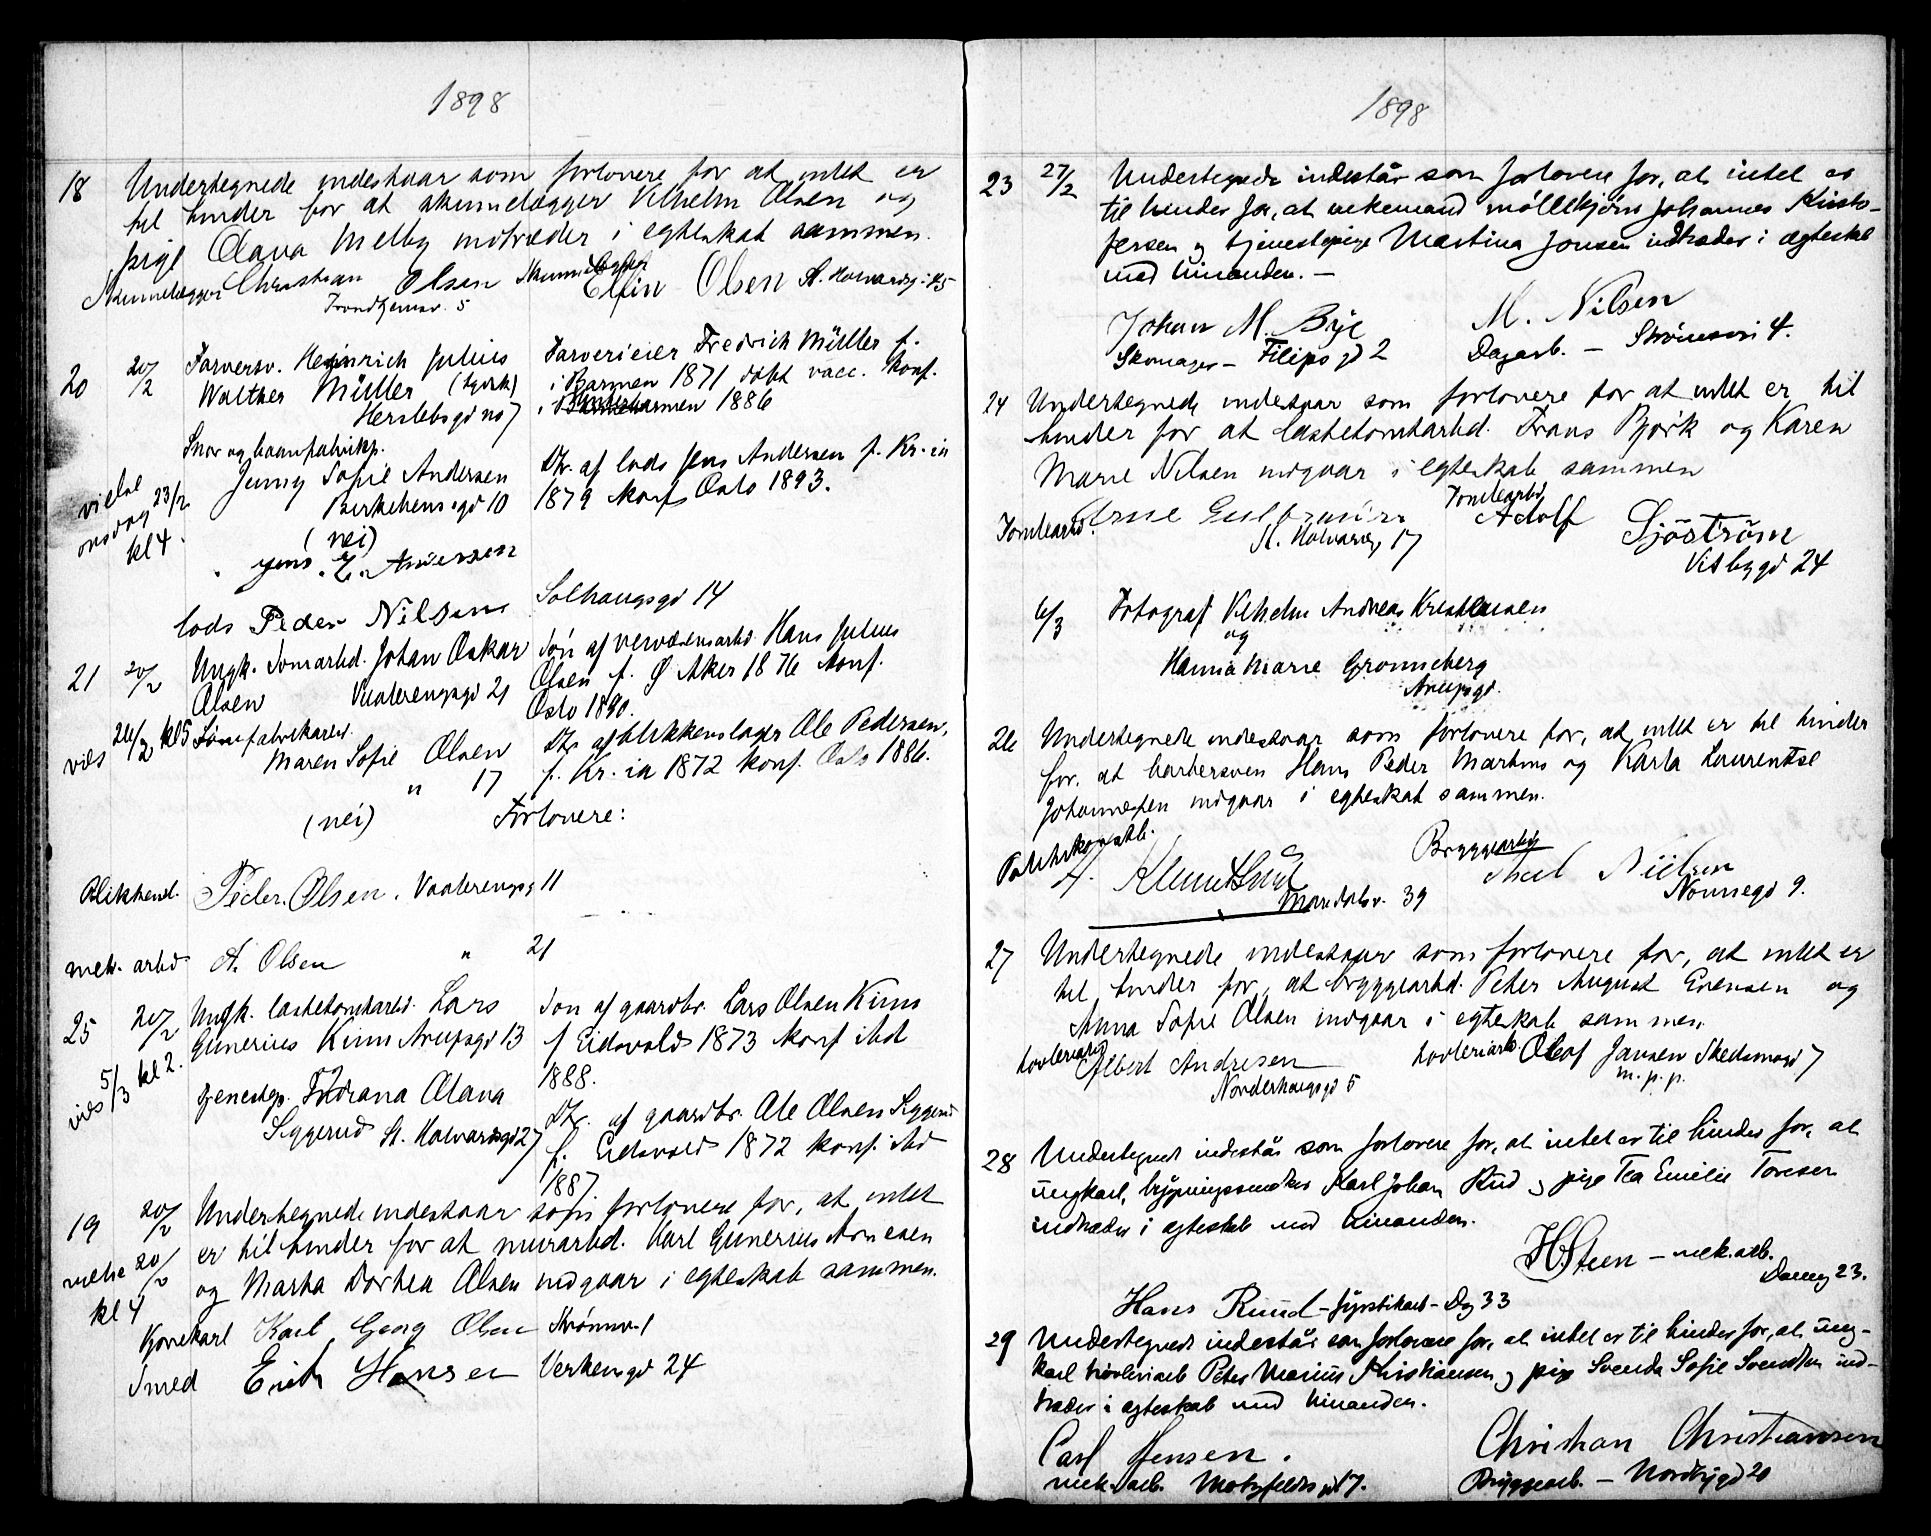 1898
18 Undertegnede indestaar som forlovere for at intet er
til hinder for at skindlægger Vilhelm Olsen og
pige Olava Melby indtræder i egteskab sammen.
Christian Olsen Elfin Olsen St. Halvardsg. 45
Trondhjemsv. 5
20 20/2 Farversv. Heinrich Julius
Walther Müller (tysk)
Herslebsgd no 7
Farverieier Fredrich Müller f.
i Barmen 1871 døbt vacc. konf.
i Barmen 1886
Snor og baandfabrikp.
Jenny Sofie Andersen
Birkebeinsgd 10
(nei)
Dtr. af lods Jens Andersen f. Kr.ia
1879 konf Oslo 1893.
vielse
onsdag 23/2
kl 4.
Jens E. Andersen
Solhaugsgd 14
lods Peder Nilsen
21 20/2 Ungk. tomtarbd. Johan Oskar
Olsen Vaalerengsgd 21
Søn af Hans Julius
Olsen f. Ø Aker 1876 konf.
Oslo 1890.
vies 26/2 kl 5
Maren Sofie Olsen
" 17
(nei)
Dtr af blikkenslager Ole Pedersen,
f. Kr.ia 1872 konf. Oslo 1886.
Forlovere:
Blikkensl. Peder Olsen. Vaalerengsg 11
mek. arbd A. Olsen " 21
25 20/2 Ungk. lastetomtarbd. Lars
Gunerius Kinn Arupsgd 13
Søn af gaardbr. Lars Olsen Kinn
f Eidsvold 1873 konf ibd
1888.
vies 5/3 kl 2.
tjenestep. Indiana Olava
Seggerud St. Halvardsgd 27
Dtr. af gaardbr. Ole Olsen Seggerud
f. Eidsvold 1872 konf. ibd
1887.
19 20/2 Undertegnede indestaar som forlovere for, at intet
er til hinder for at murarbd. Karl Gunerius Arnesen
og Marta Dorthea Olsen indgaar i egteskab sammen.
vielse 20/2
kl 4
Kjørekarl Karl Georg Olsen Strømsv. 1
Smed Erik Hansen Verkensgd 24
1898
23 27/2 Undertegnede indestår som forlovere for, at intet er
til hinder for, at enkemand møllekjører Johannes Kristo-
fersen og tjenestepige Martina Jonsen indtræder i ægteskab
med hinanden. —
Johan M. Bye
Skomager — Filipsgd 2
M. Nilsen
Dagarb. — Strømsvei 4.
24 Undertegnede indestaar som forlovere for at intet er til
hinder for at lastetomtarbd. Frans Bjørk og Karen
Marie Nilsen indgaar i egteskab sammen
Tomtearbd.
St. Halvardsg. 17
Tomtearbd
Adolf Sjöström
Visbygd 24
6/3 Fotograf Vilhelm Andreas Kristensen
og
Hanna Marie Gronneberg
Arupsgd.
26 Undertegnede indestaar som forlovere for, at intet er til hinder
for, at barbersven Hans Peder Martins og Karla Laurentse
Johannesen indgaar i egteskab sammen.
Politikonstb.
Mandalsv. 39
Bryggearbd
Nielsen
Nonnegd 9.
27 Undertegnede indestaar som forlovere for, at intet er
til hinder for, at bryggearbd. Peter August Evensen og
Anna Sofie Olsen indgaar i egteskab sammen.
høvleriarb
Albert Andresen
Norderhaugsgd 5
høvleriarb. Olaf Jansen Skedsmogd 7
m.p.p.
28 Undertegnede indestår som forlovere for, at intet er til hinder for, at
ungkarl, bygningssnedker Karl Johan Ruud og pige Tea Emilie Toresen
indtræder i ægteskab med hinanden.
H. Steen — mek. arb.
Daleng 23.
Hans Ruud — fyrstikarb — Dg 33
29 Undertegnede indestår som forlovere for, at intet er til hinder for, at ung-
karl høvleriarb Peter Marius Kristiansen og pige Svenda Sofie Svendsen ind-
træder i ægteskab med hinanden.
Carl Jensen.
mek. arb. Motzfeldtsgd 17.
Christian Christiansen
Bryggearb. — Nordbygd 20